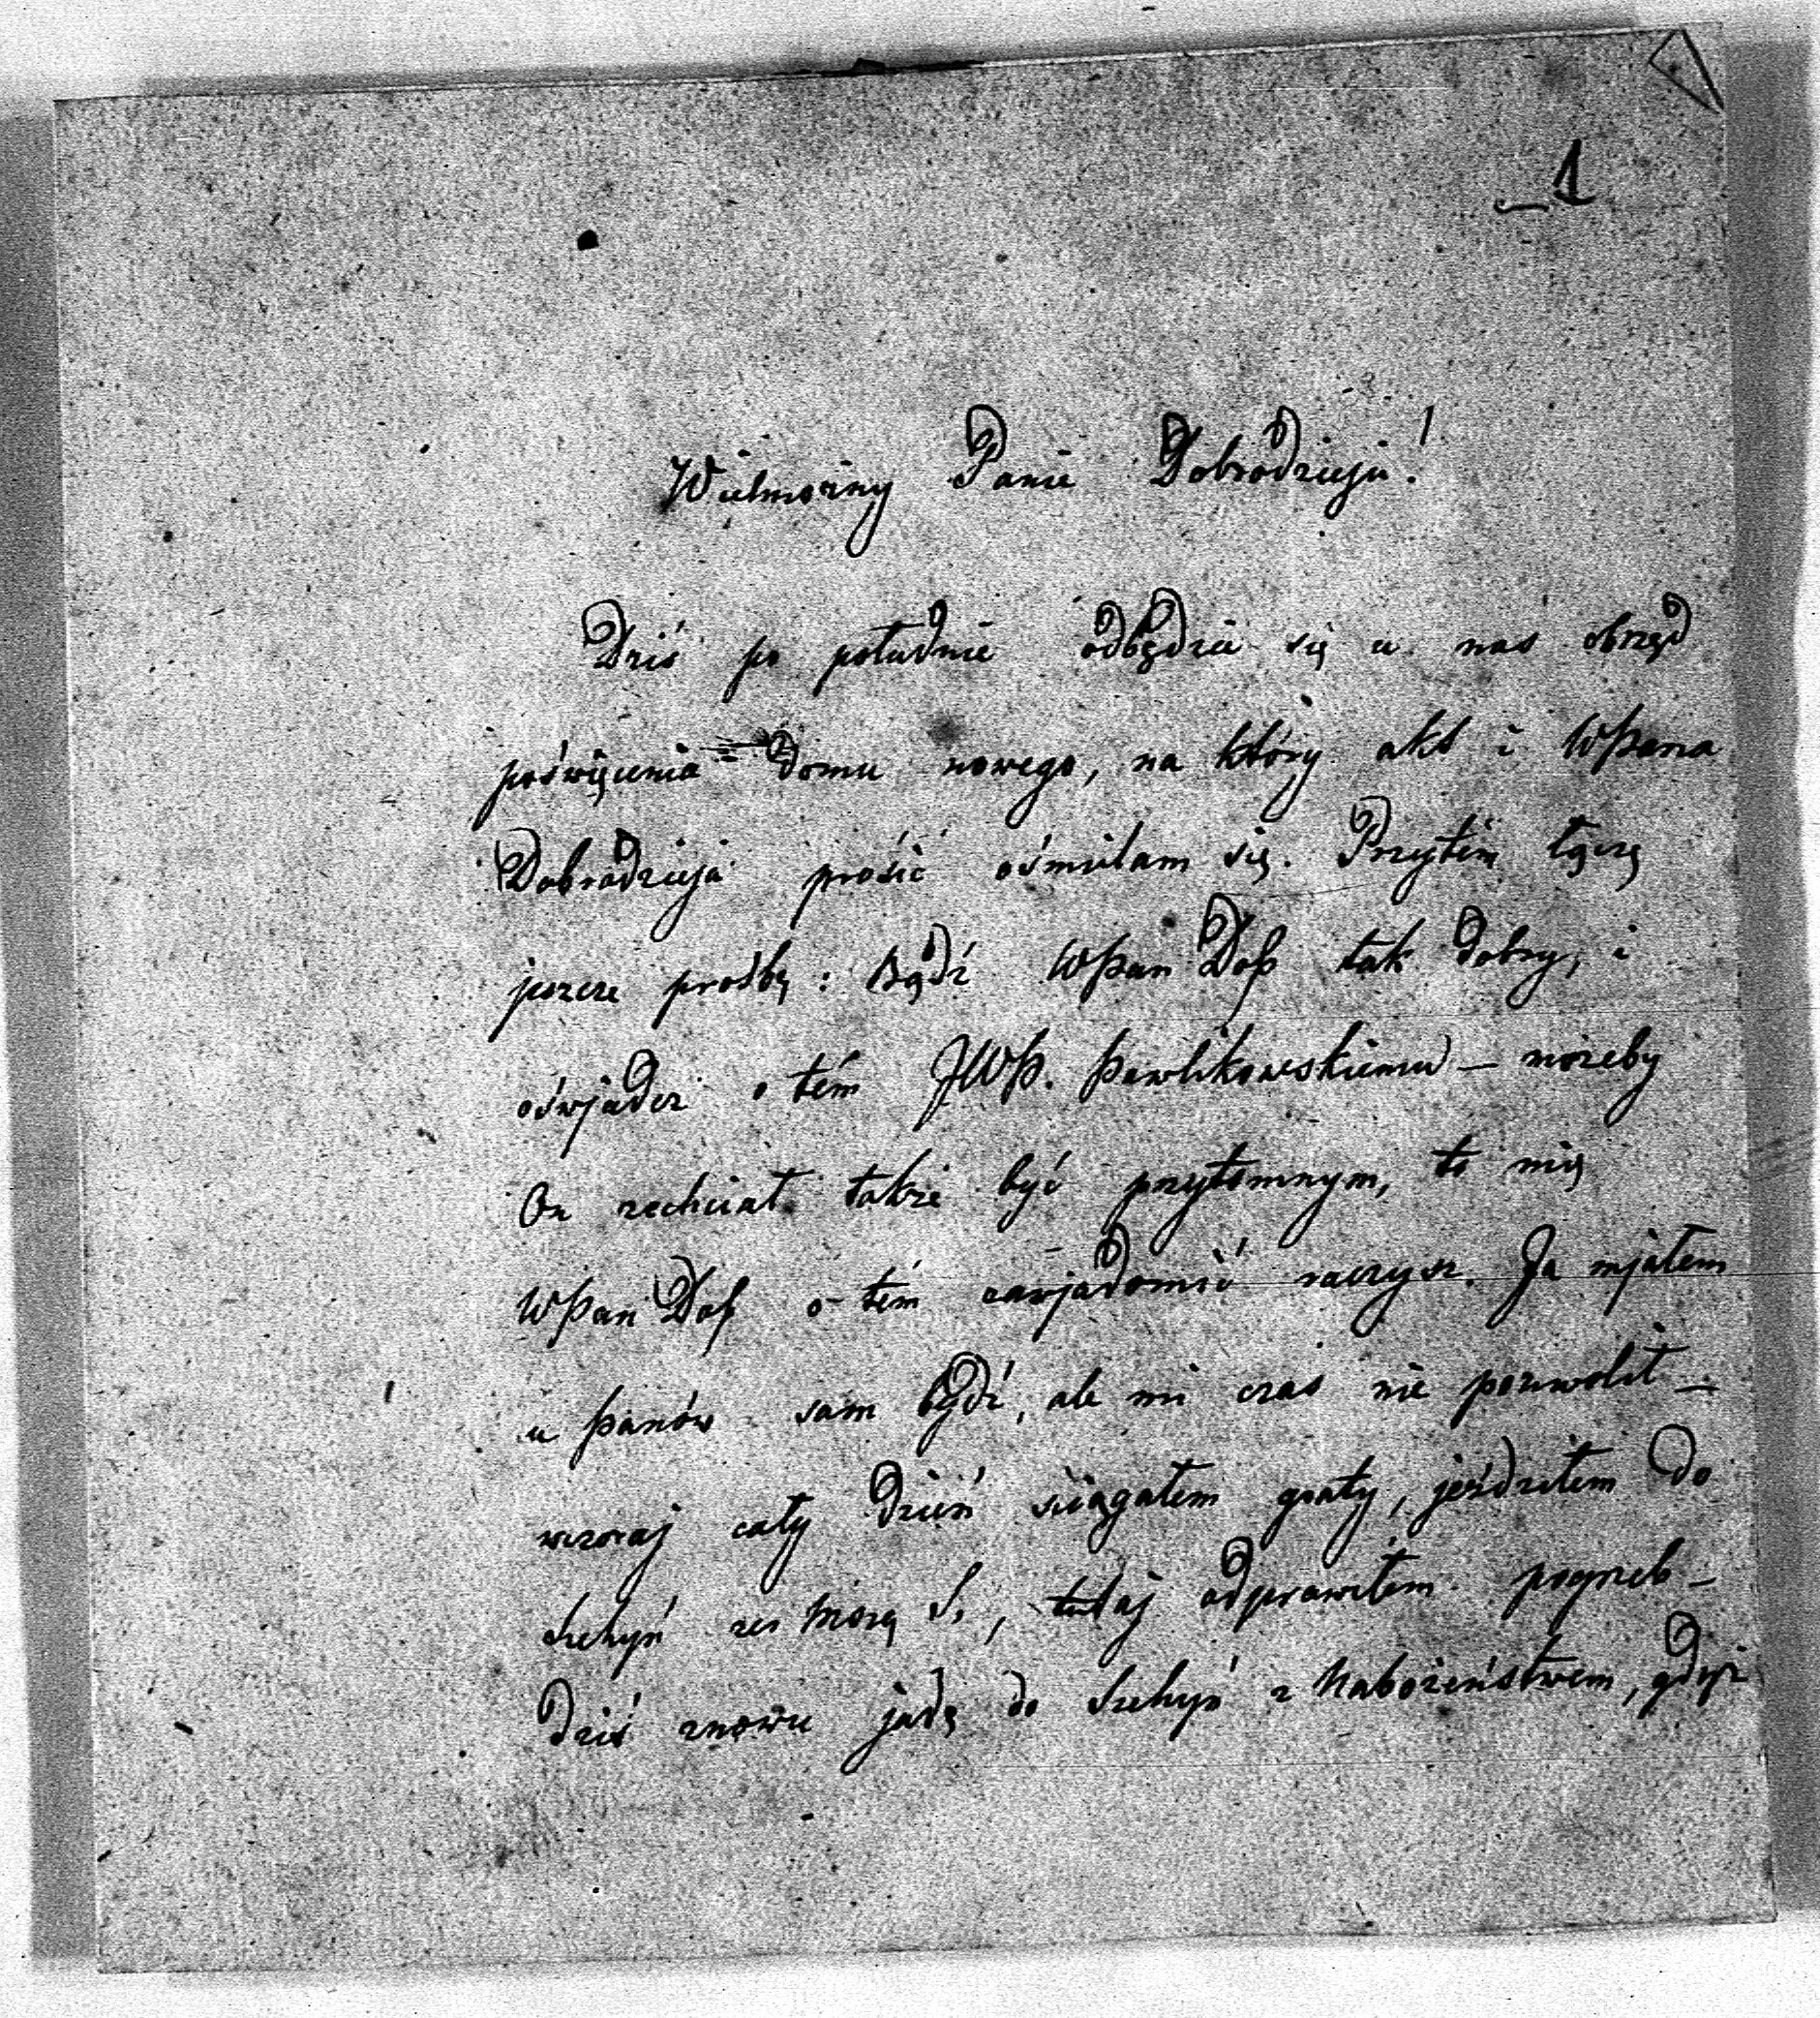 1
Wielmożny Panie Dobrodzieju!
Dziś po południe odbędzie się u nas obrzęd
poświęcenia domu nowego, na który akt i WPana
Dobrodzieja prosić ośmielam się. Przytém łączę
jeszcze prośbę: Bądź WPan Dob tak dobry, i
oświadcz o tém JWP. Pawlikowskiemu – możeby
On zechciał także być przytomnym, to mię
WPan Dob o tém zawjadomić raczysz. Ja mjałem
u Panów sam bydź, ale mi czas nie pozwolił –
wczoraj cały dzień ściągałem graty, jeździłem do
Szehyń ze Mszą S., tutaj odprawiłem pogrzeb –
dziś znowu jadę do Szehyń z Nabożeństwem, gdyż